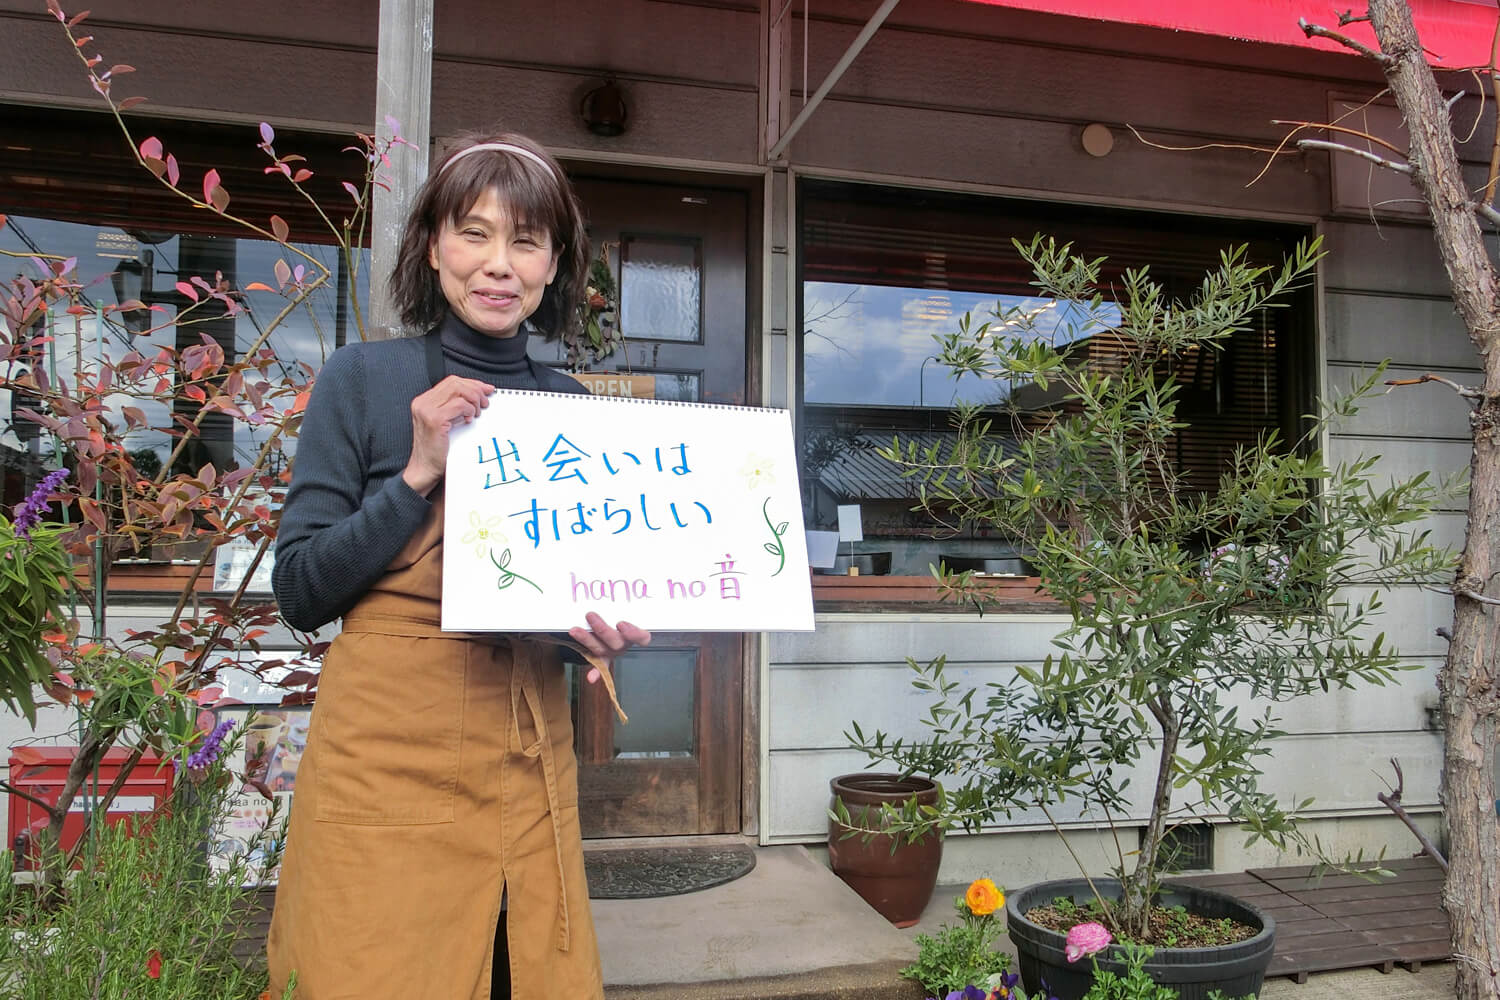 OPEN
出会いは
すばらしい
hana no音